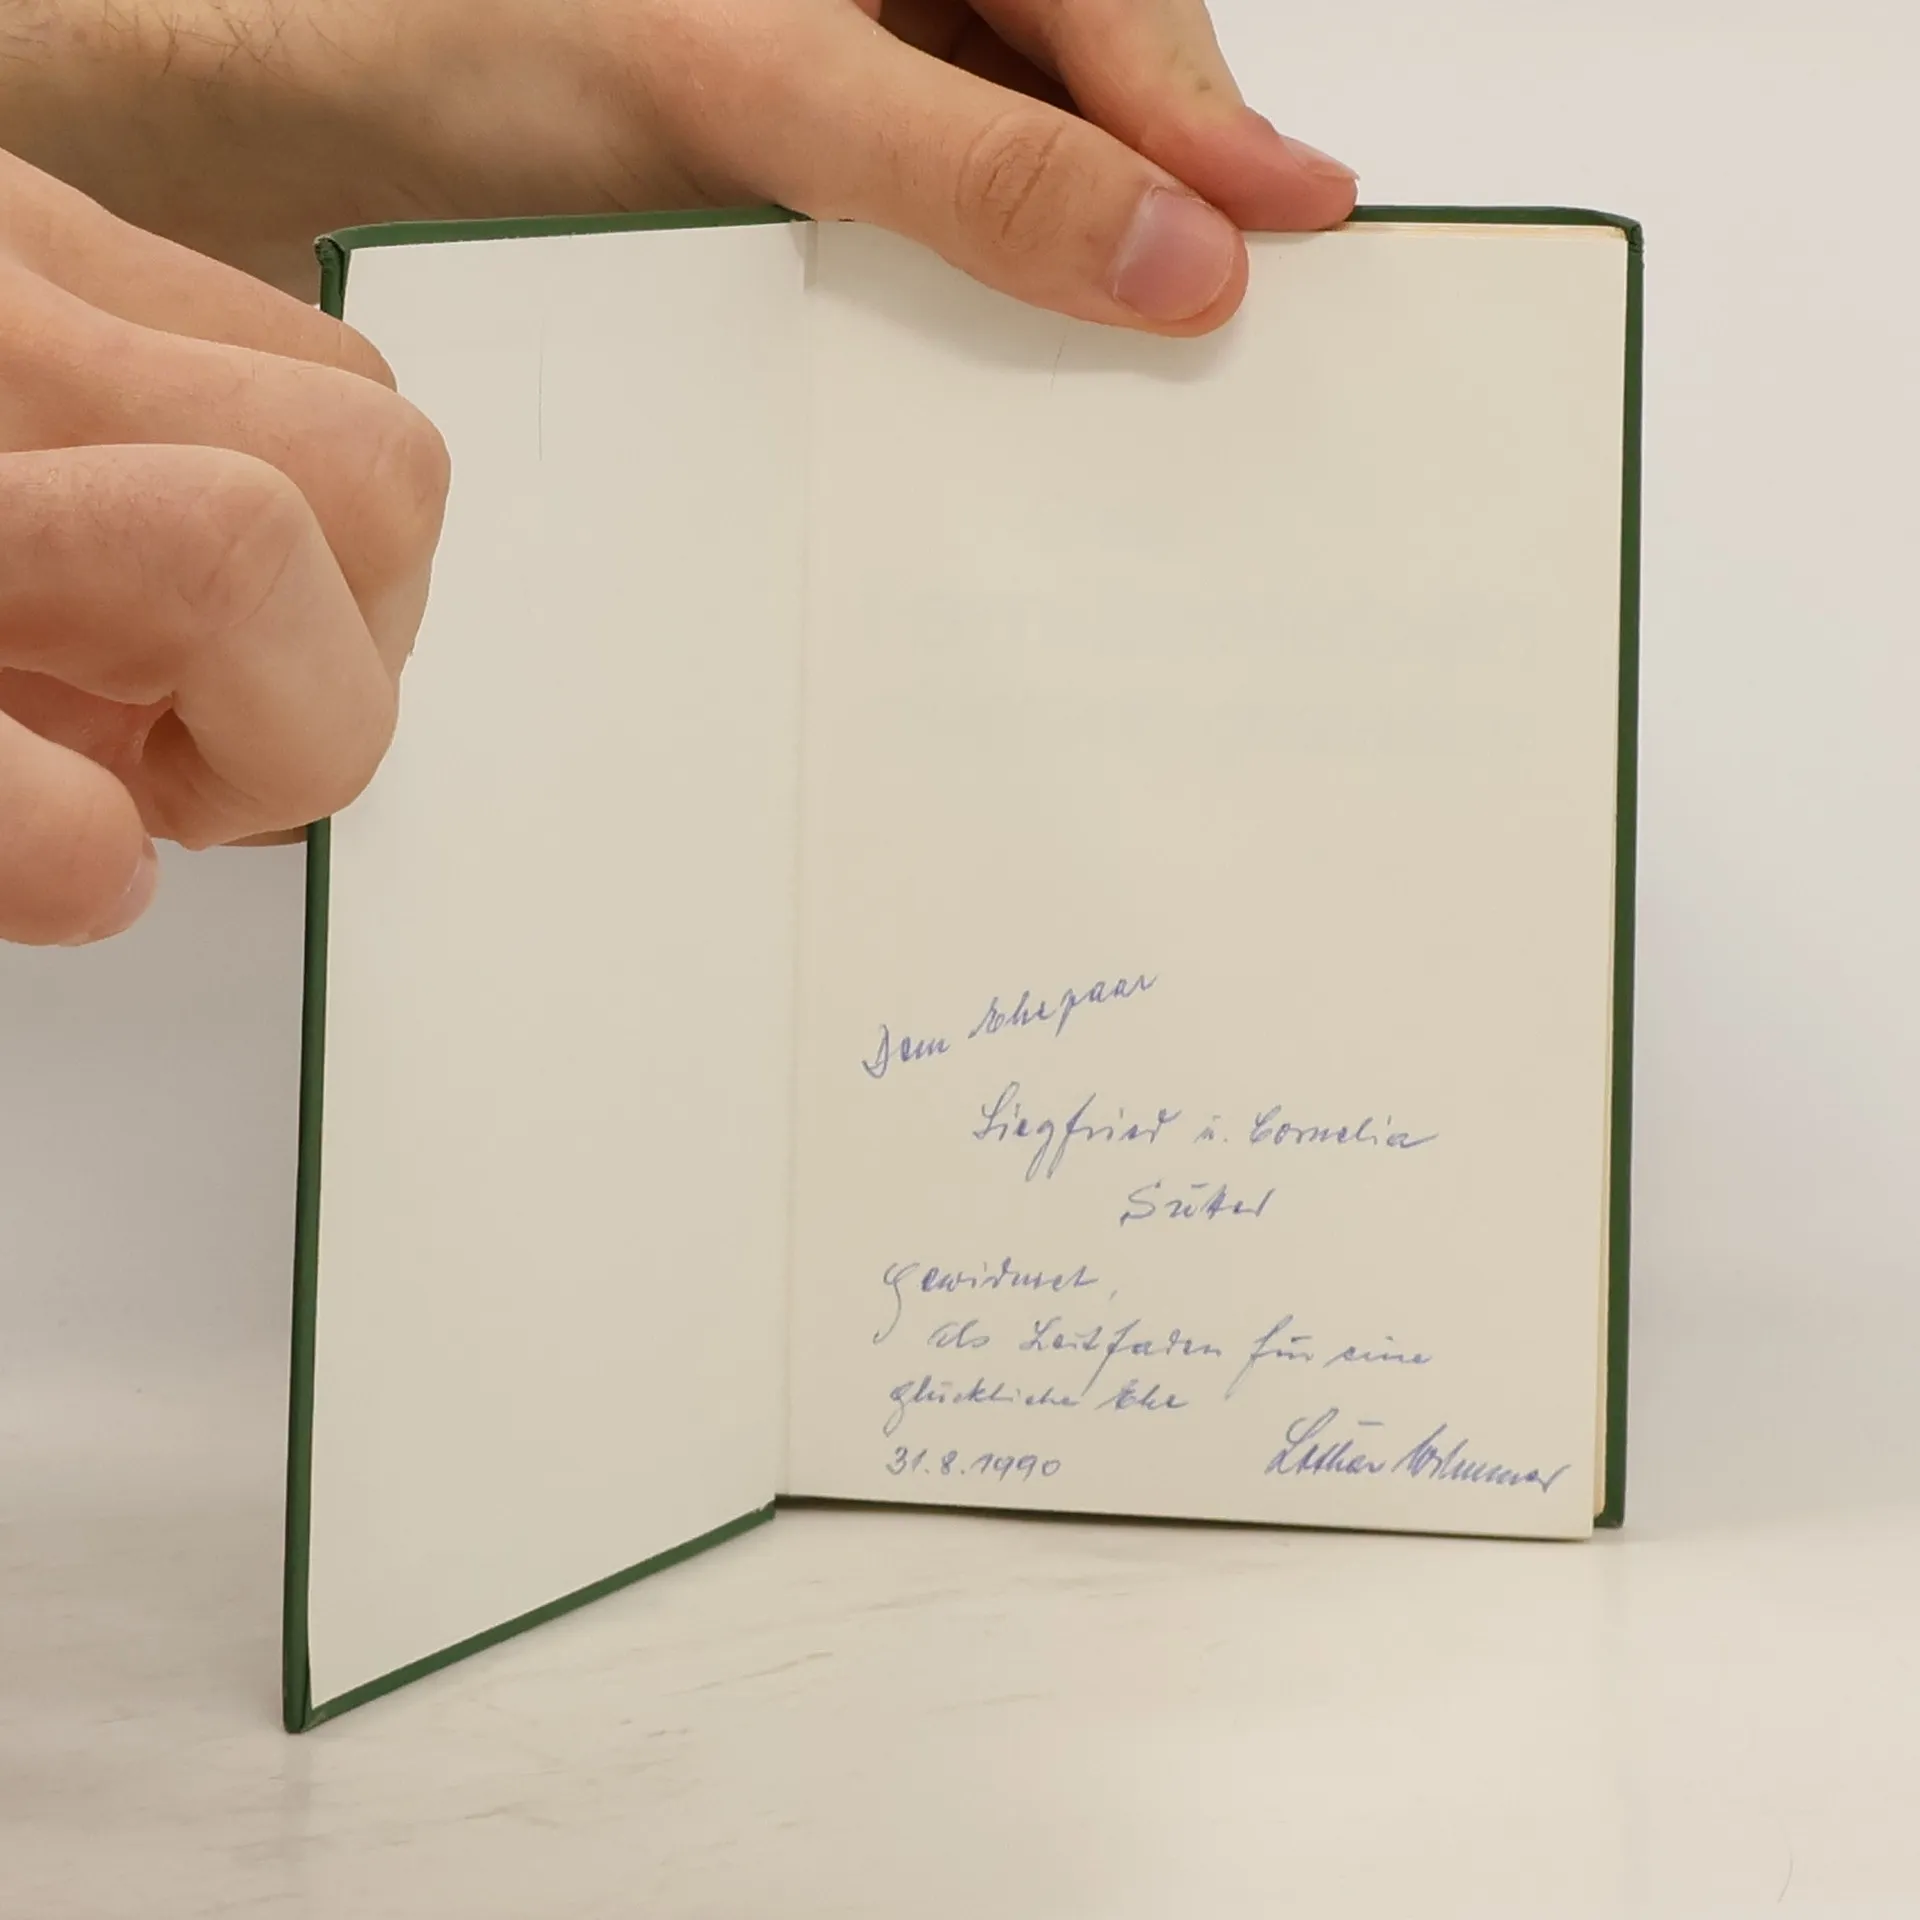 Dem Ehepaar
Siegfried u. Cornelia
Sütter
gewidmet,
als Leitfaden für eine
glückliche Ehe
31.8.1990 Lothar